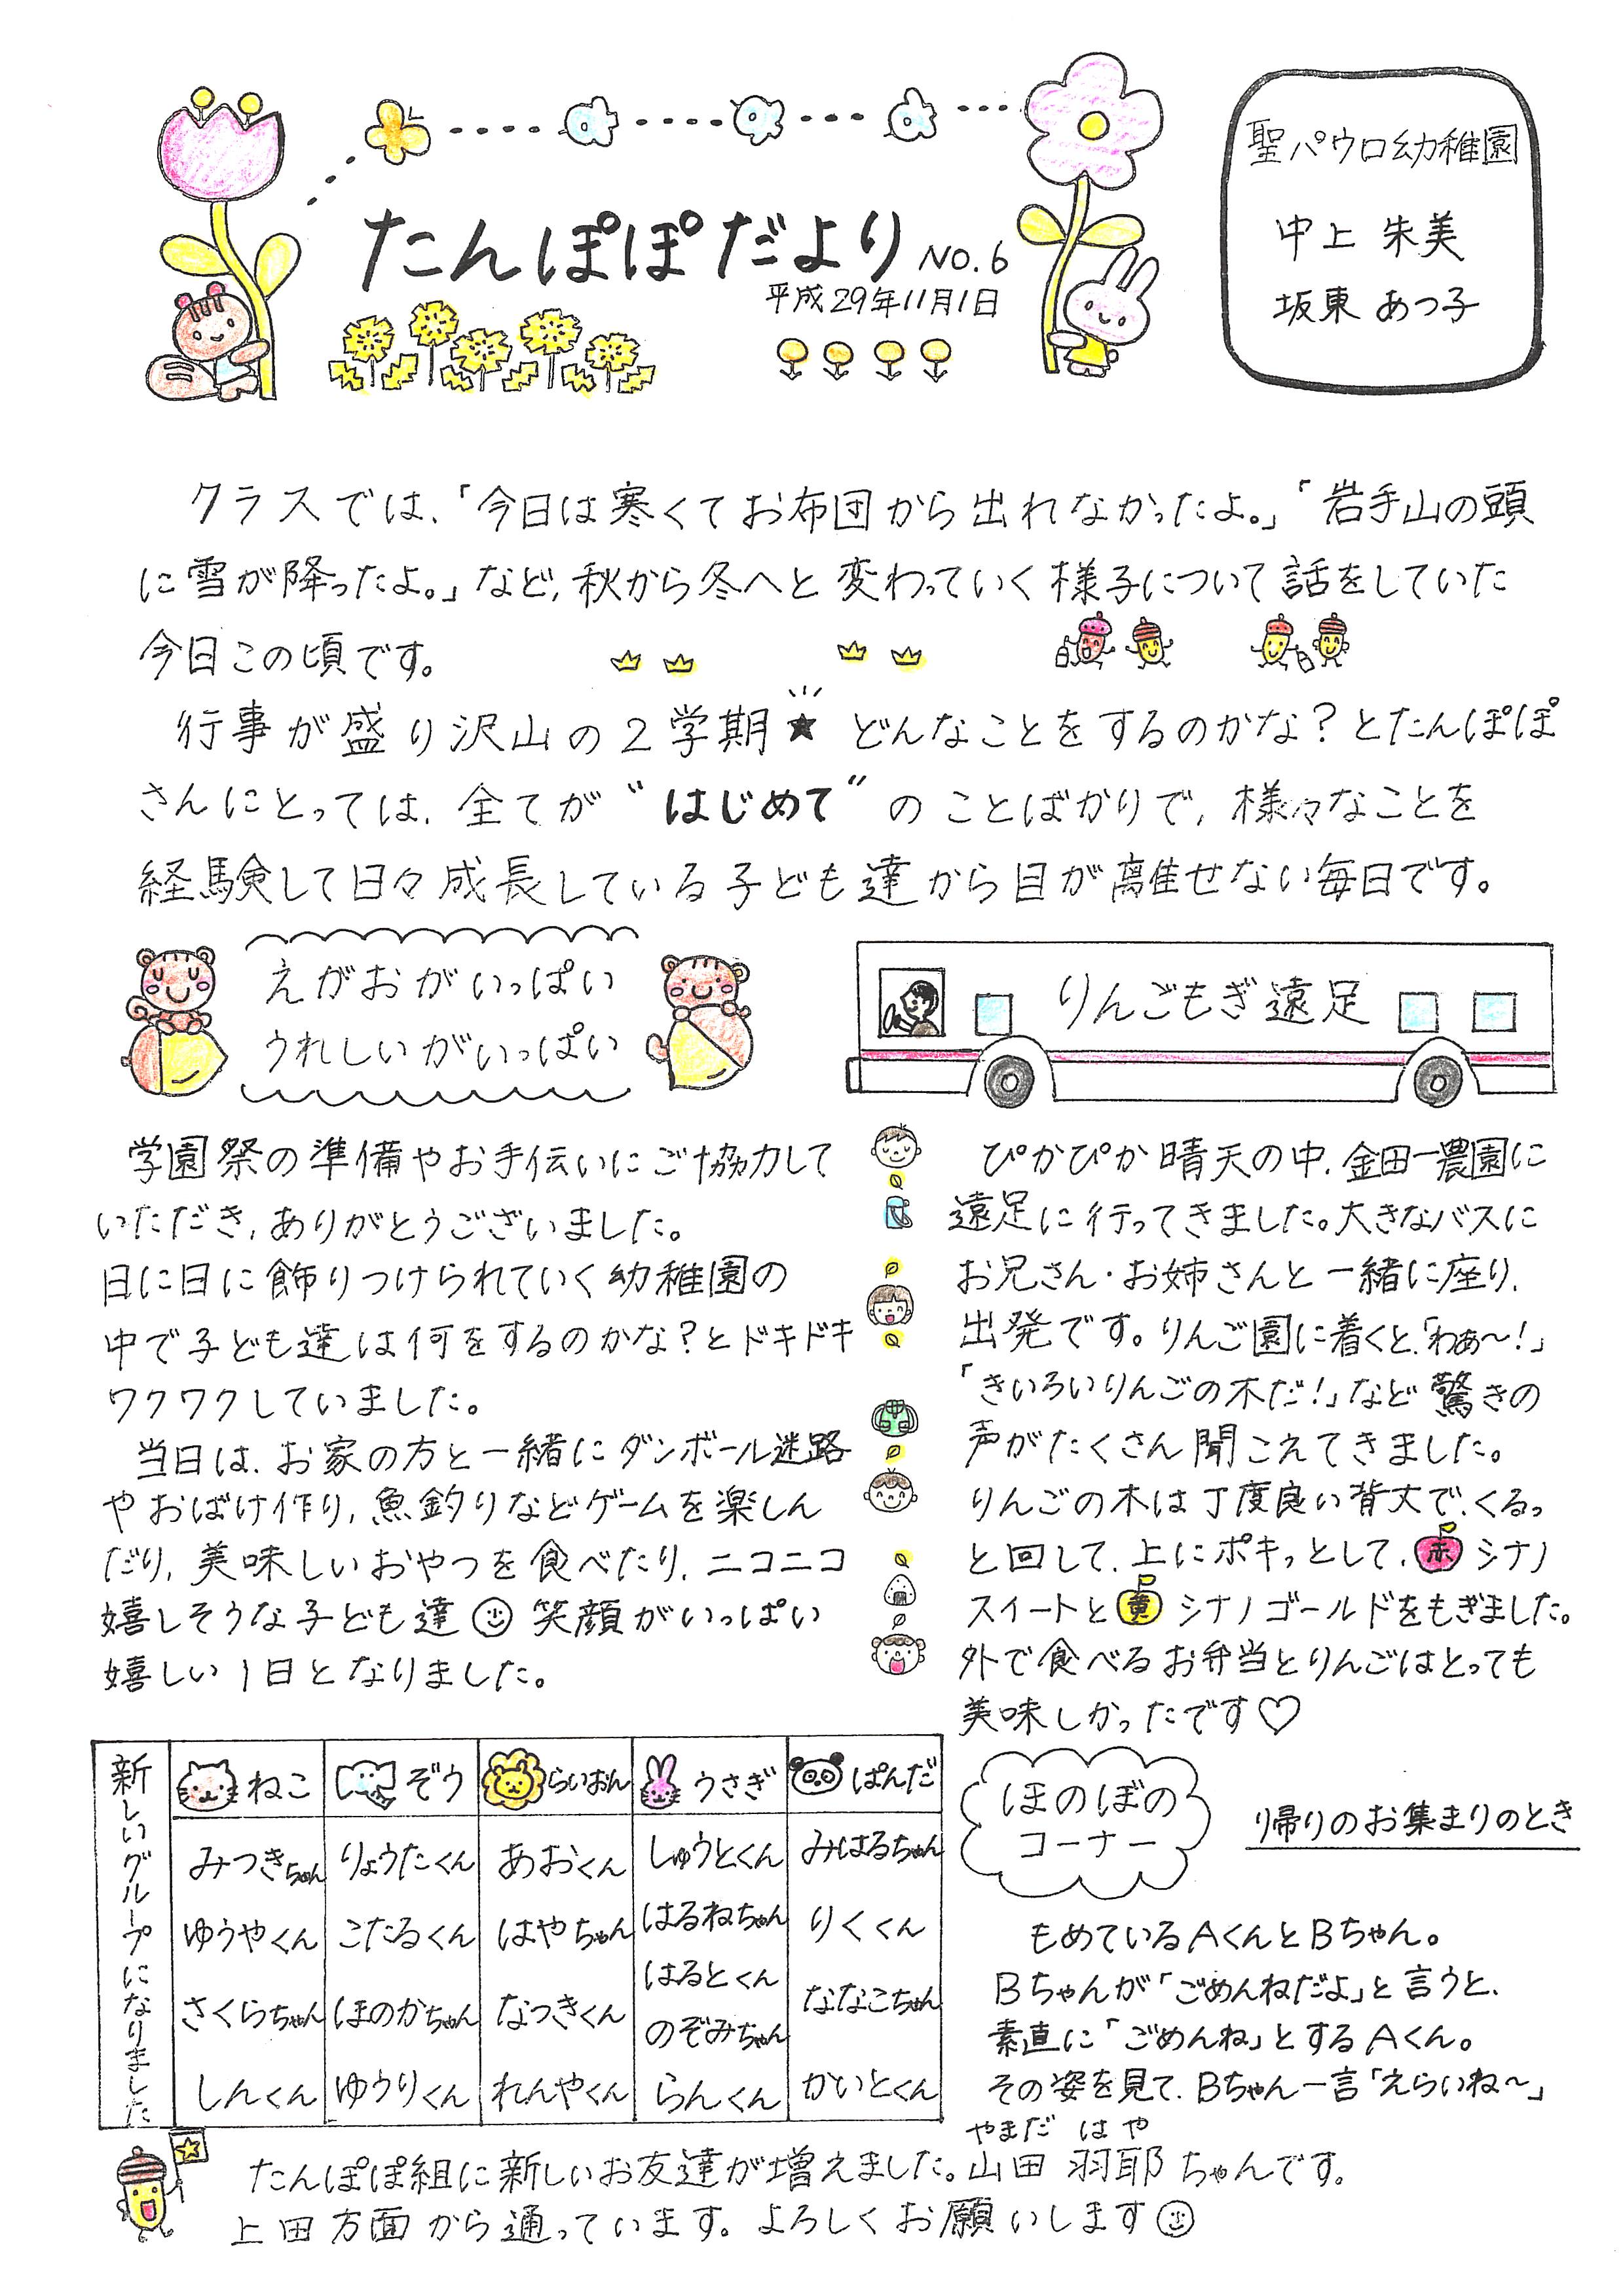 たんぽぽだより NO.6
平成29年11月1日
聖パウロ幼稚園
中上 朱美
坂東 あつ子
クラスでは、「今日は寒くてお布団から出れなかったよ。」「岩手山の頭
に雪が降ったよ。」など、秋から冬へと変わっていく様子について話をしていた
今日この頃です。
行事が盛り沢山の2学期★ どんなことをするのかな?とたんぽぽ
さんにとっては、全てが〝はじめて〟のことばかりで、様々なことを
経験して日々成長している子ども達から目が離せない毎日です。
えがおがいっぱい
うれしいがいっぱい
学園祭の準備やお手伝いにご協力して
いただき、ありがとうございました。
日に日に飾りつけられていく幼稚園の
中で子ども達は何をするのかな?とドキドキ
ワクワクしていました。
当日は、お家の方と一緒にダンボール迷路
やおばけ作り、魚釣りなどゲームを楽しん
だり、美味しいおやつを食べたり、ニコニコ
嬉しそうな子ども達☺笑顔がいっぱい
嬉しい1日となりました。
りんごもぎ遠足
ぴかぴか晴天の中、金田一農園に
遠足に行ってきました。大きなバスに
お兄さん・お姉さんと一緒に座り、
出発です。りんご園に着くと、「わぁ〜!」
「きいろいりんごの木だ!」など驚きの
声がたくさん聞こえてきました。
りんごの木は丁度良い背丈で、くるっ
と回して、上にポキッとして、赤シナノ
スイートと黄シナノゴールドをもぎました。
外で食べるお弁当とりんごはとっても
美味しかったです♡
新しいグループになりました
ねこ ぞう らいおん うさぎ ぱんだ
みつきちゃん りょうたくん あおくん しゅうとくん みはるちゃん
ゆうやくん こたるくん はやちゃん はるねちゃん りくくん
さくらちゃん ほのかちゃん なつきくん はるとくん ななこちゃん
のぞみちゃん
しんくん ゆうりくん れんやくん らんくん かいとくん
ほのぼの
コーナー
帰りのお集まりのとき
もめているAくんとBちゃん。
Bちゃんが「ごめんねだよ」と言うと、
素直に「ごめんね」とするAくん。
その姿を見て、Bちゃん一言「えらいね〜」
やまだ はや
たんぽぽ組に新しいお友達が増えました。山田 羽耶ちゃんです。
上田方面から通っています。よろしくお願いします☺